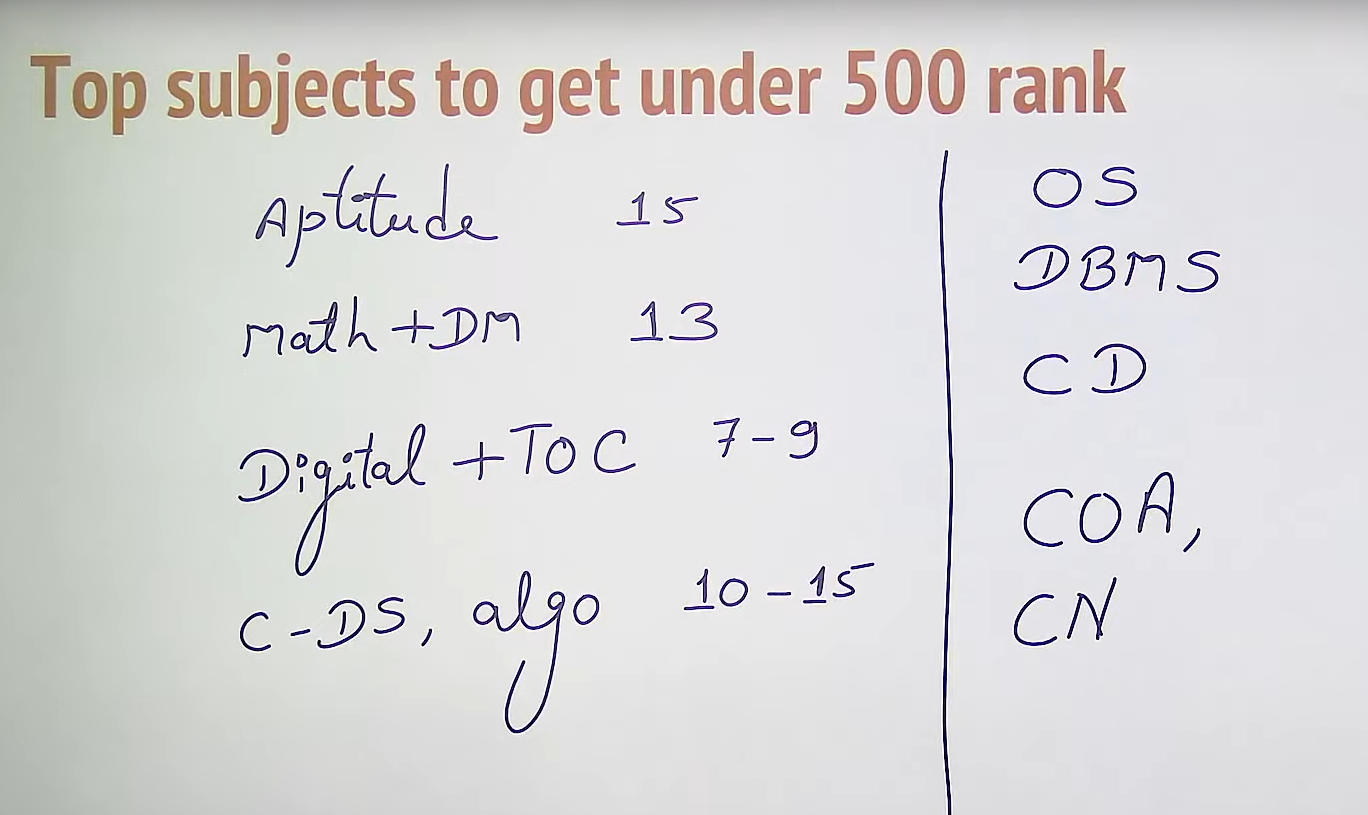 Top subjects to get under 500 rank
Aptitude 15
Math + DM 13
Digital + TOC 7-9
C-DS, algo 10-15
OS
DBMS
CD
COA,
CN